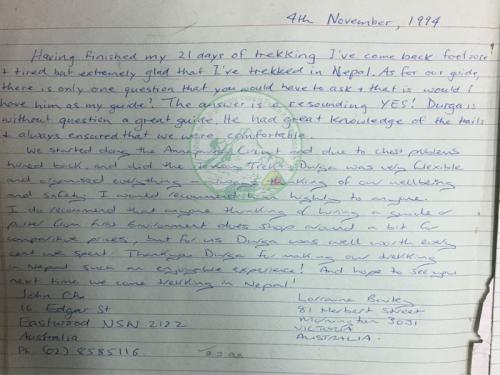 4th November, 1994
Having finished my 21 days of trekking I've come back footsore
+ tired but extremely glad that I've trekked in Nepal. As for our guide,
there is only one question that you would have to ask + that is would I
have him as my guide? The answer is a resounding YES! Durga is
without question a great guide. He had great knowledge of the trails
+ always ensured that we were comfortable.
We started doing the Annapurna Circuit and due to chest problems
turned back, and did the Trek. Durga was very flexible
and organised everything always thinking of our wellbeing
and safety. I would recommend him highly to anyone.
I do recommend that anyone thinking of hiring a guide or
porter from first Environment does shop around a bit for
competitive prices, but for us Durga was well worth every
cent we spent. Thankyou Durga for making our trekking
in Nepal such an enjoyable experience! And hope to see you
next time we come trekking in Nepal!
John
16 Edgar St
Eastwood NSW 2122
Australia
Ph (02) 8585116
Lorraine
81 Herbert Street
Mornington 3931
VICTORIA
AUSTRALIA.